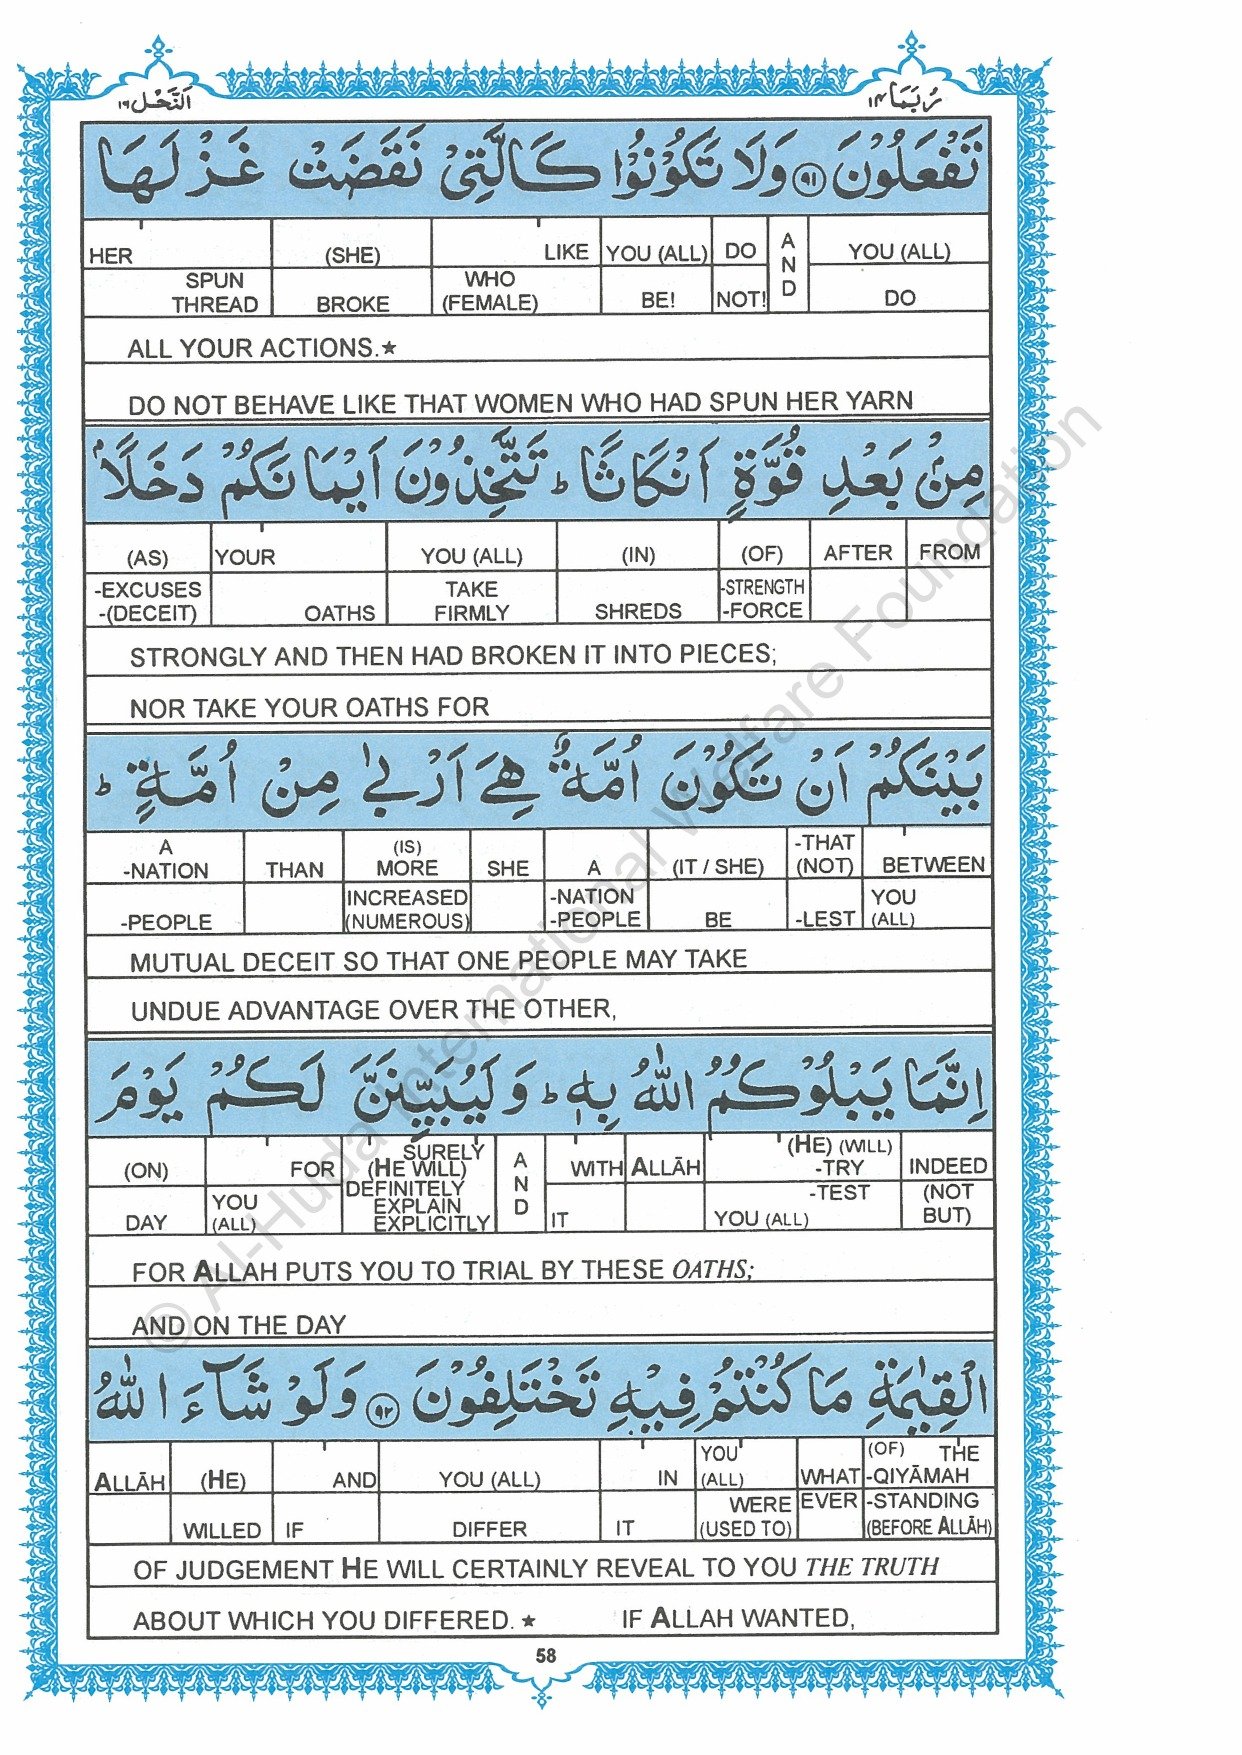 النَّحْل ١٦ رُبَمَا ١٤
تَفْعَلُوْنَ ﴿٩١﴾ وَلَا تَكُوْنُوْا كَالَّتِيْ نَقَضَتْ غَزْلَهَا
HER (SHE) LIKE YOU (ALL) DO AND YOU (ALL)
SPUN THREAD BROKE WHO (FEMALE) BE! NOT! DO
ALL YOUR ACTIONS.★
DO NOT BEHAVE LIKE THAT WOMEN WHO HAD SPUN HER YARN
مِنْۢ بَعْدِ قُوَّةٍ اَنْكَاثًا ؕ تَتَّخِذُوْنَ اَيْمَانَكُمْ دَخَلًاۢ
(AS) YOUR YOU (ALL) (IN) (OF) AFTER FROM
-EXCUSES -(DECEIT) OATHS TAKE FIRMLY SHREDS -STRENGTH -FORCE
STRONGLY AND THEN HAD BROKEN IT INTO PIECES;
NOR TAKE YOUR OATHS FOR
بَيْنَكُمْ اَنْ تَكُوْنَ اُمَّةٌ هِيَ اَرْبٰى مِنْ اُمَّةٍ ؕ
A -NATION THAN (IS) MORE SHE A (IT / SHE) -THAT (NOT) BETWEEN
-PEOPLE INCREASED (NUMEROUS) -NATION -PEOPLE BE -LEST YOU (ALL)
MUTUAL DECEIT SO THAT ONE PEOPLE MAY TAKE
UNDUE ADVANTAGE OVER THE OTHER,
اِنَّمَا يَبْلُوْكُمُ اللّٰهُ بِهٖ ؕ وَلَيُبَيِّنَنَّ لَكُمْ يَوْمَ
(ON) FOR SURELY (HE WILL) AND WITH ALLĀH (HE) (WILL) -TRY INDEED
DAY YOU (ALL) DEFINITELY EXPLAIN EXPLICITLY IT YOU (ALL) -TEST (NOT BUT)
FOR ALLAH PUTS YOU TO TRIAL BY THESE OATHS;
AND ON THE DAY
الْقِيٰمَةِ مَا كُنْتُمْ فِيْهِ تَخْتَلِفُوْنَ ﴿٩٢﴾ وَلَوْ شَآءَ اللّٰهُ
ALLĀH (HE) AND YOU (ALL) IN YOU (ALL) WHAT (OF) THE -QIYĀMAH
WILLED IF DIFFER IT WERE (USED TO) EVER -STANDING (BEFORE ALLĀH)
OF JUDGEMENT HE WILL CERTAINLY REVEAL TO YOU THE TRUTH
ABOUT WHICH YOU DIFFERED. ★ IF ALLAH WANTED,
58
© Al-Huda International Welfare Foundation